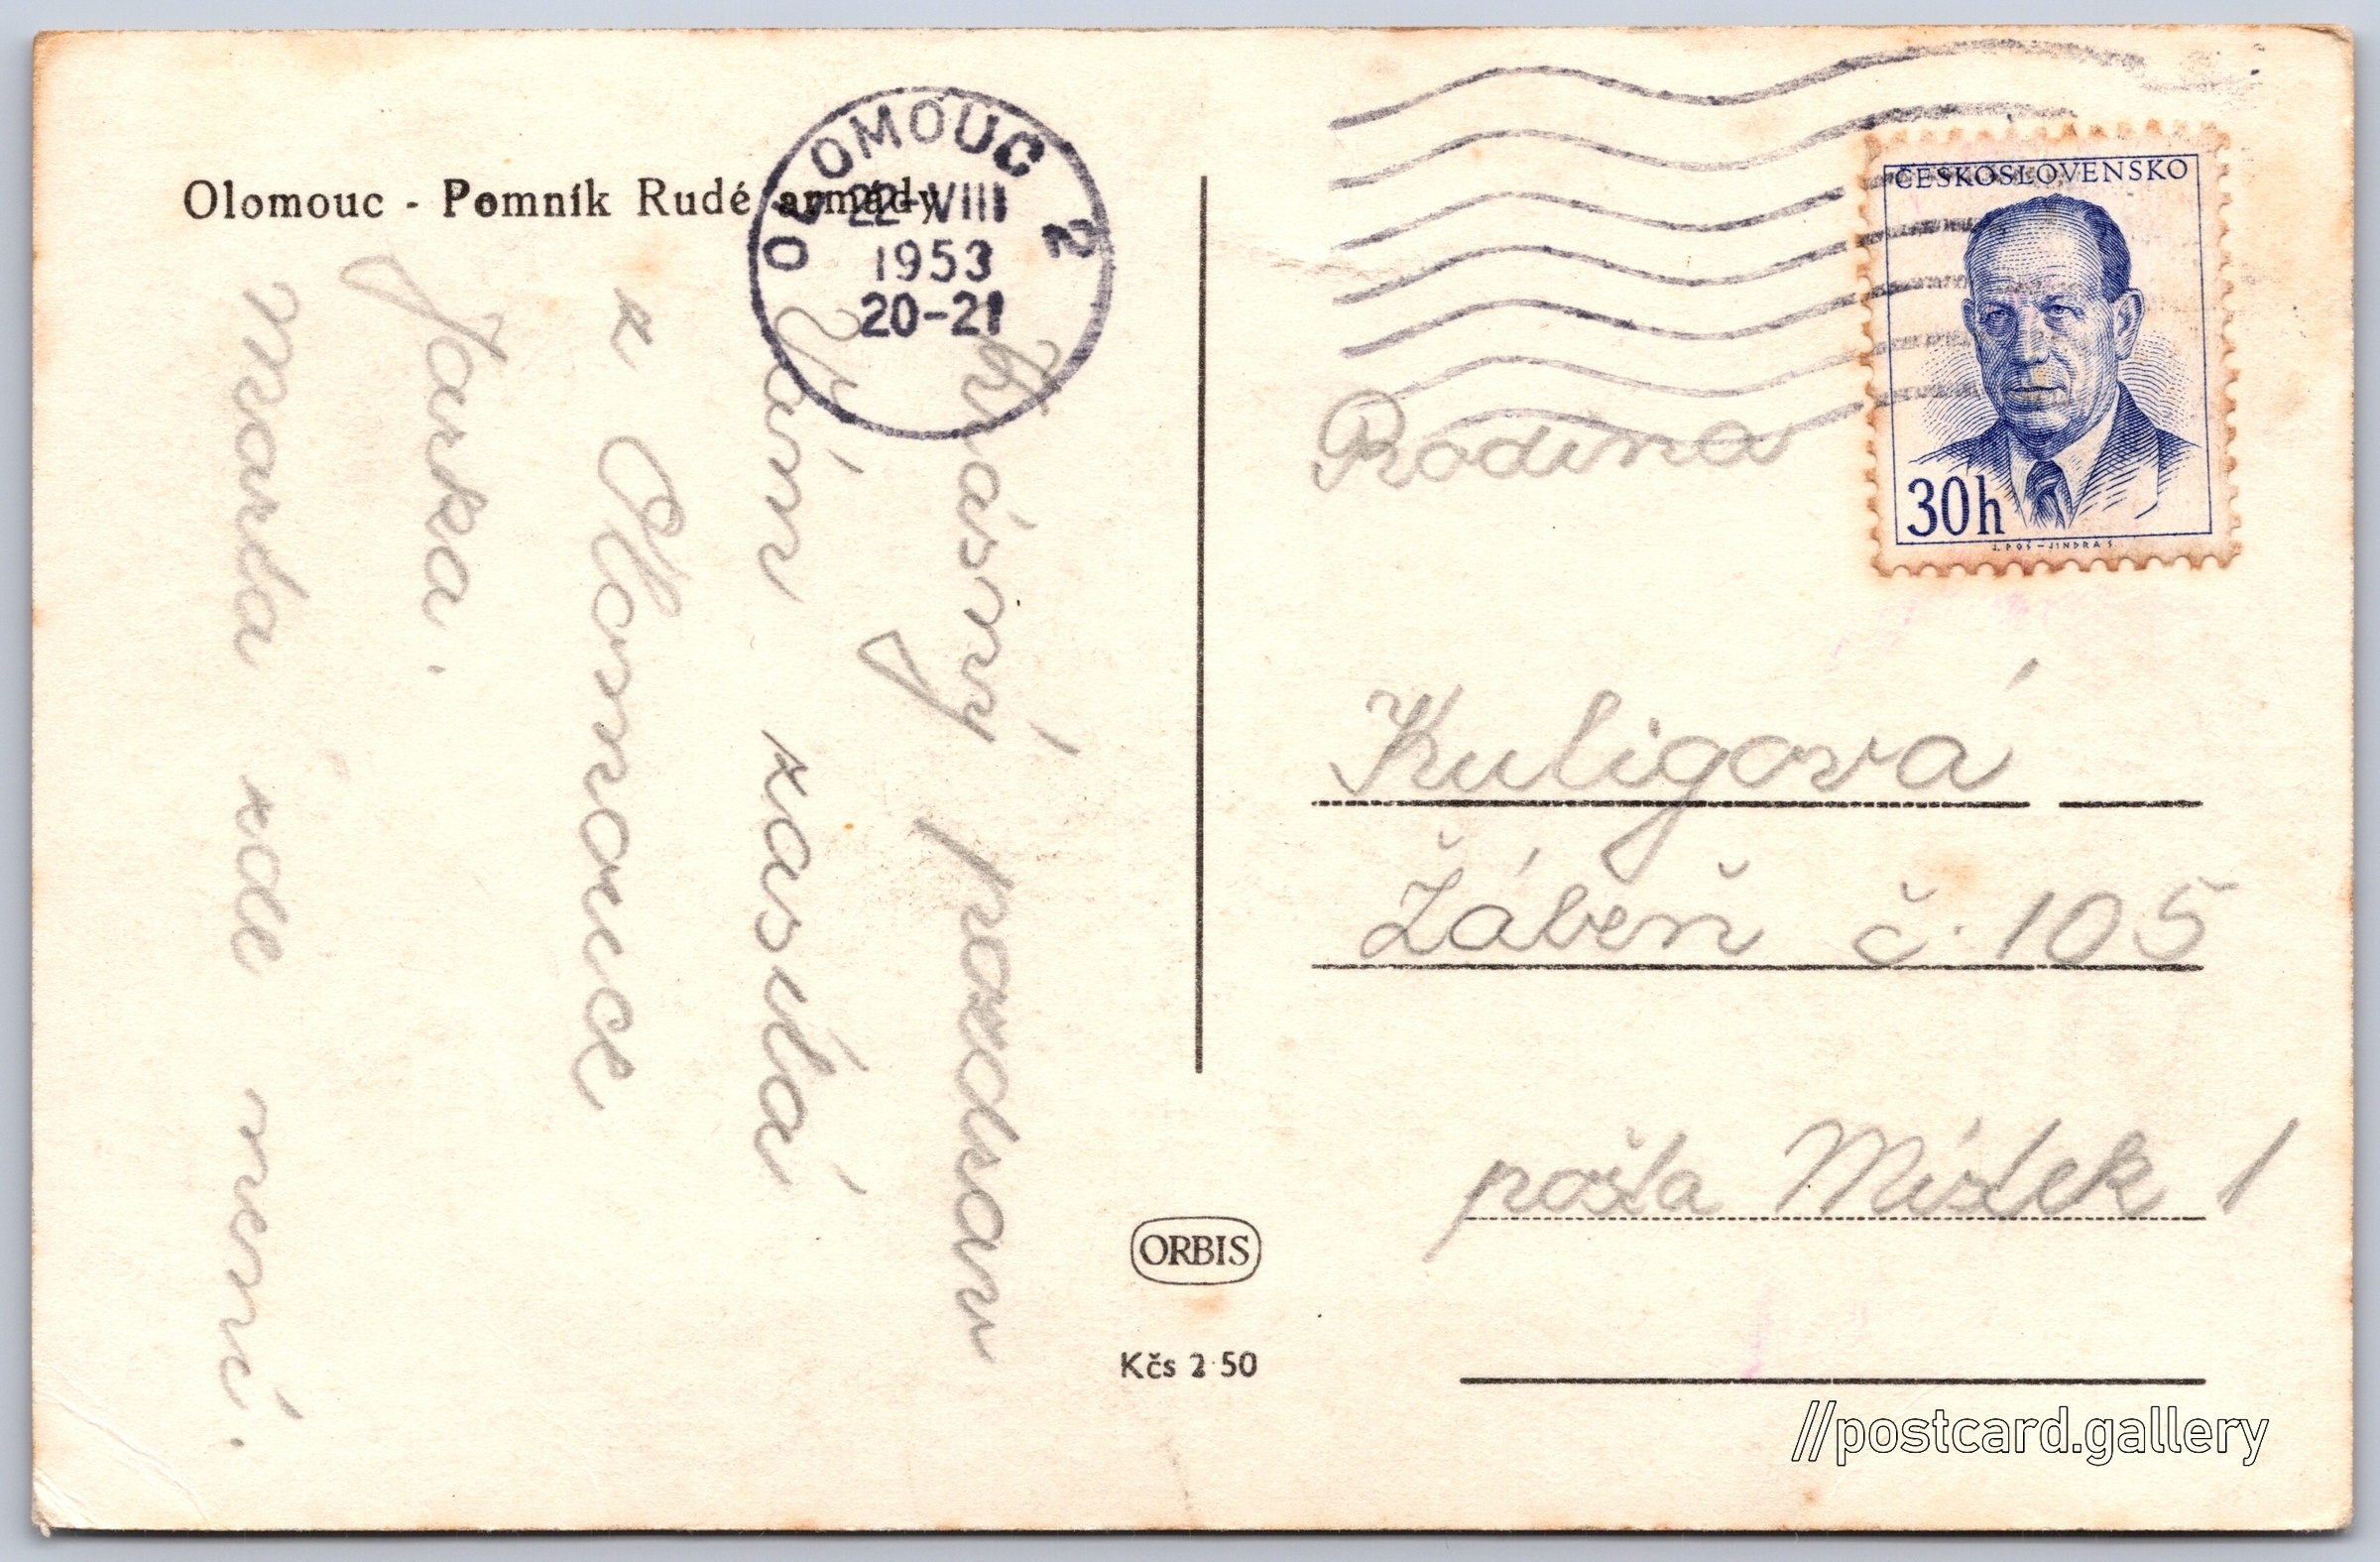 Olomouc - Pomník Rudé armády
OLOMOUC 2
22-VIII
1953
20-21
ČESKOSLOVENSKO
30h
J. POŠ-JINDRA S.
Krásný pozdrav
Vám zasílá
z Olomouce
Jarka.
Marta zde není.
Rodina
Kuligová
Žábeň č. 105
pošta Místek 1
ORBIS
Kčs 2·50
//postcard.gallery